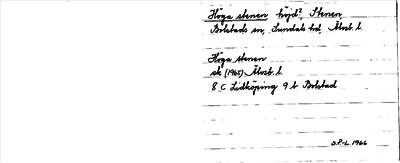 Höga stenen, höjd?, Stenen,
Bolstads sn, Sundals hd, Älvsb. l.
Höga stenen
ek (1965) Älvsb. l.
8 C Lidköping 9 b Bolstad
S.P-L. 1966